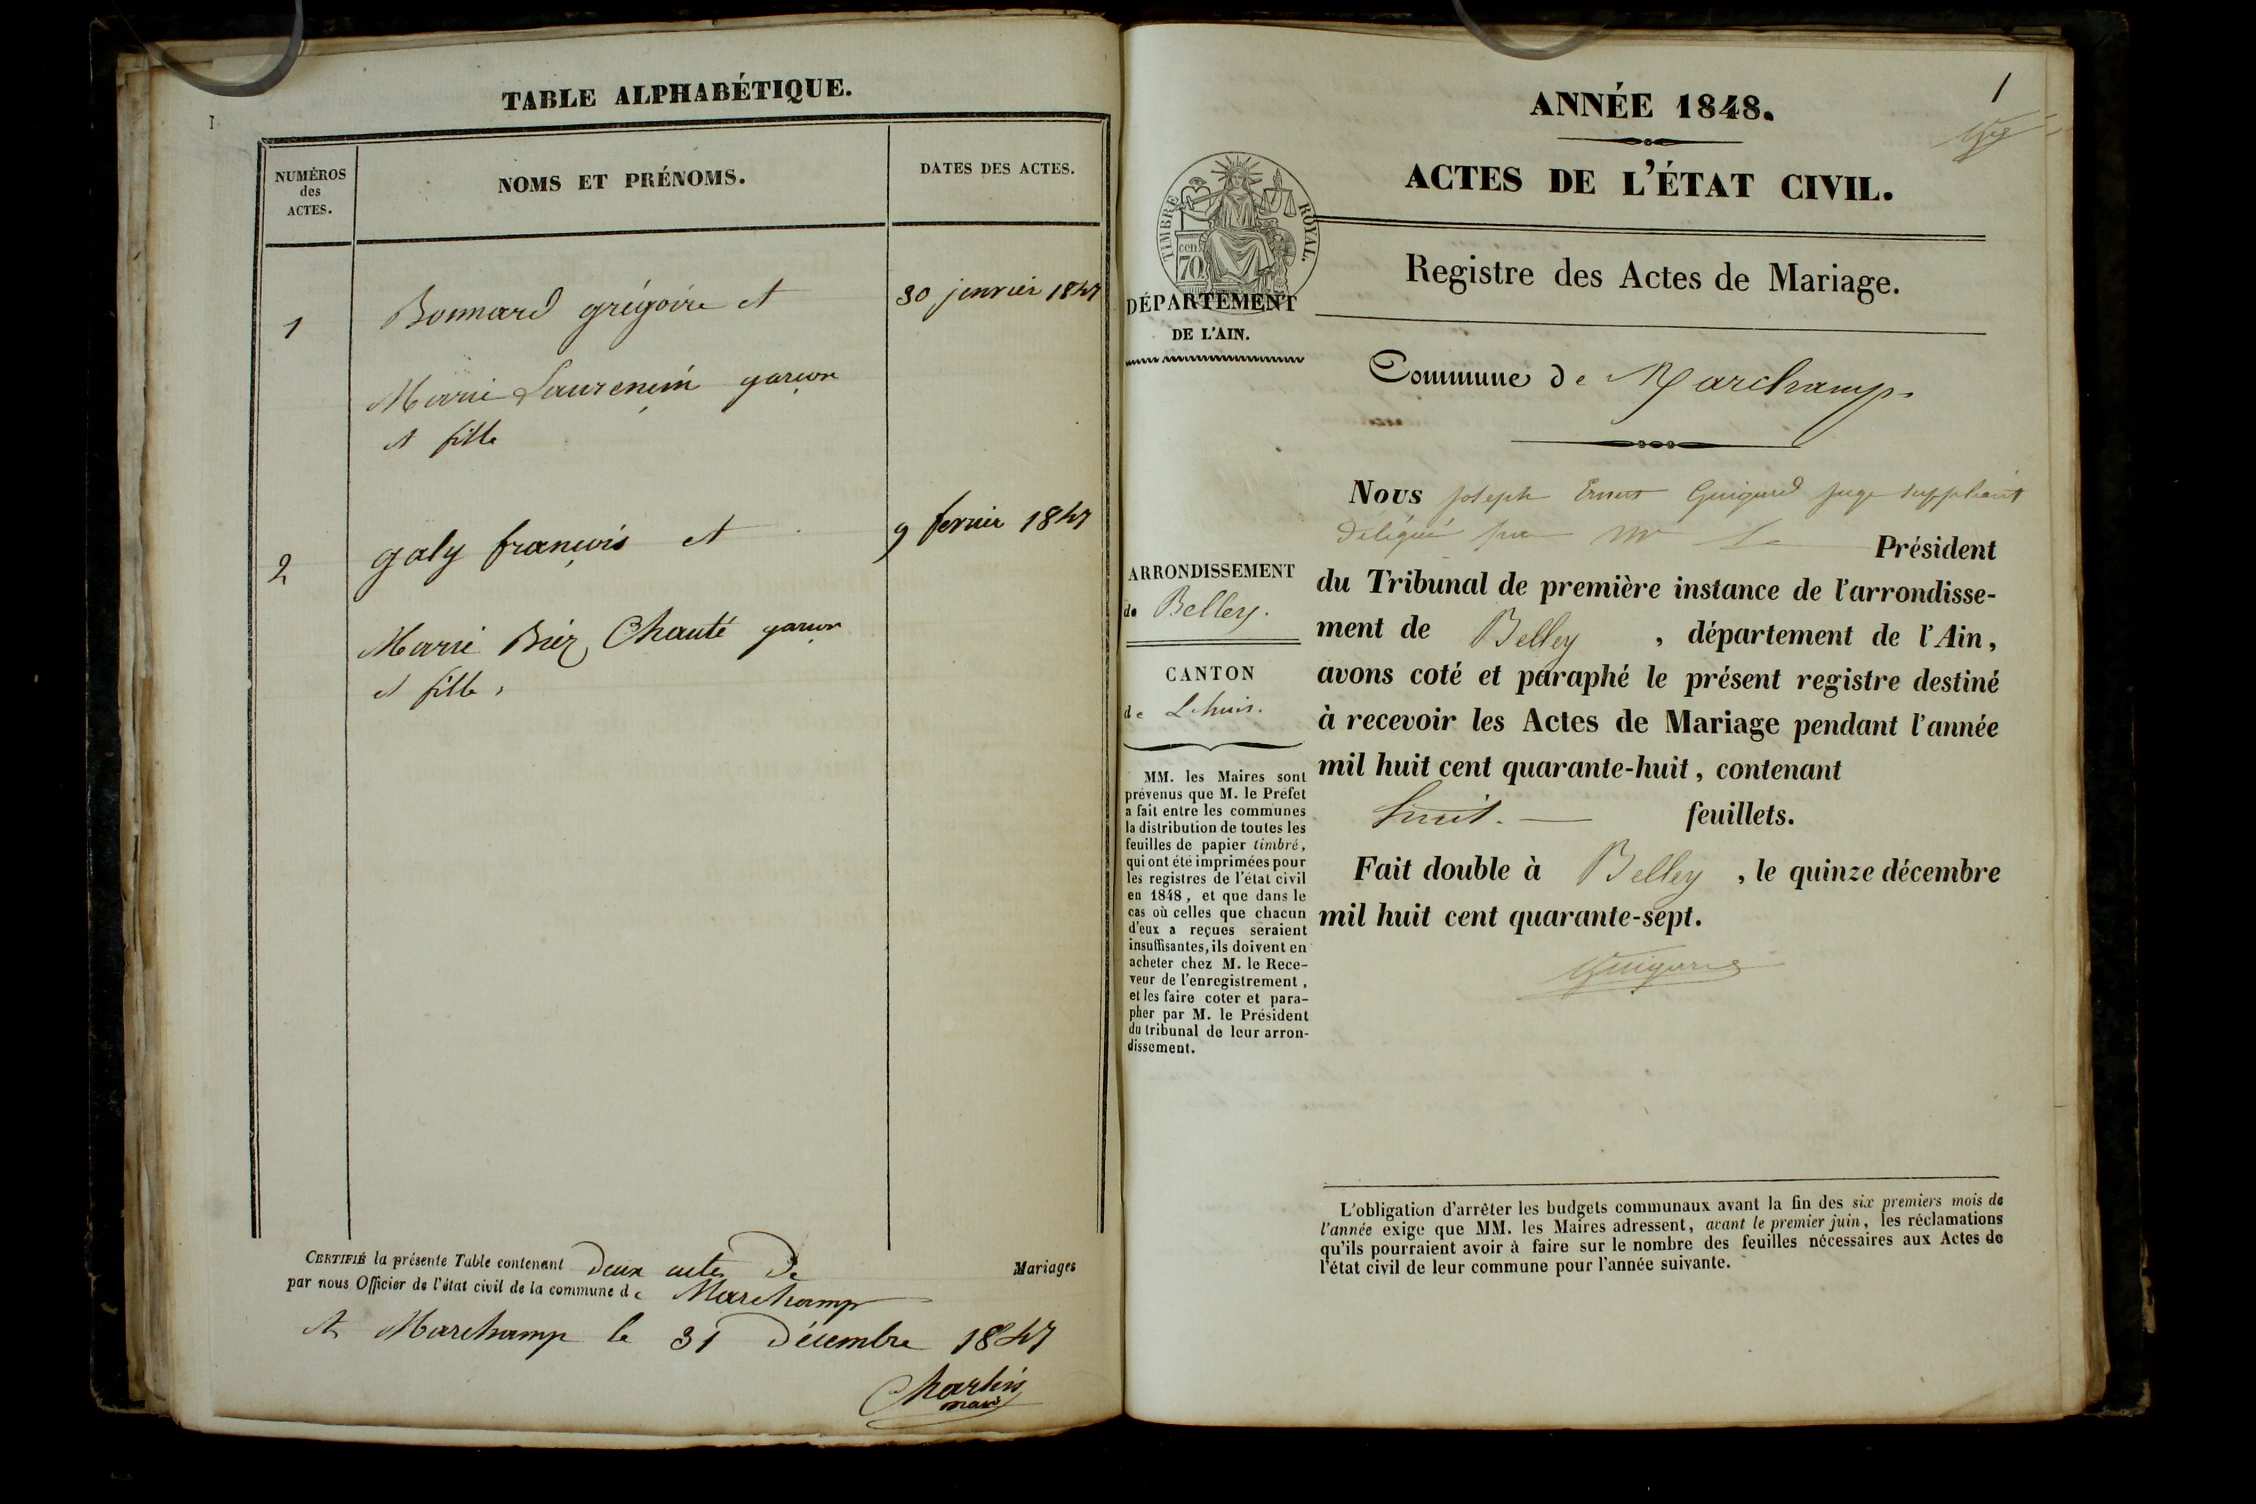 TABLE ALPHABÉTIQUE.
I.
NUMÉROS
des
ACTES.
NOMS ET PRÉNOMS.
DATES DES ACTES.
1
Bonnard grégoire et
30 janvier 1847
Marie Laurencin garçon
et fille
2
galy françois et
9 fevrier 1847
Marie Chanté garçon
et fille,
CERTIFIÉ la présente Table contenant deux actes de Mariages
par nous Officier de l'état civil de la commune de Marchamp
A Marchamp le 31 décembre 1847
maire
1
ANNÉE 1848.
ACTES DE L'ÉTAT CIVIL.
TIMBRE ROYAL.
70 cen
DÉPARTEMENT
DE L'AIN.
Registre des Actes de Mariage.
Commune de Marchamp.
ARRONDISSEMENT
de Belley.
CANTON
de Lhuis.
MM. les Maires sont
prévenus que M. le Préfet
a fait entre les communes
la distribution de toutes les
feuilles de papier timbré,
qui ont été imprimées pour
les registres de l'état civil
en 1848, et que dans le
cas où celles que chacun
d'eux a reçues seraient
insuffisantes, ils doivent en
acheter chez M. le Rece-
veur de l'enregistrement,
et les faire coter et para-
pher par M. le Président
du tribunal de leur arron-
dissement.
Nous Joseph Ernest Guigard juge suppléant
délégué par Mr le Président
du Tribunal de première instance de l'arrondisse-
ment de Belley, département de l'Ain,
avons coté et paraphé le présent registre destiné
à recevoir les Actes de Mariage pendant l'année
mil huit cent quarante-huit, contenant
huit. feuillets.
Fait double à Belley, le quinze décembre
mil huit cent quarante-sept.
Guigard
L'obligation d'arrêter les budgets communaux avant la fin des six premiers mois de
l'année exige que MM. les Maires adressent, avant le premier juin, les réclamations
qu'ils pourraient avoir à faire sur le nombre des feuilles nécessaires aux Actes de
l'état civil de leur commune pour l'année suivante.